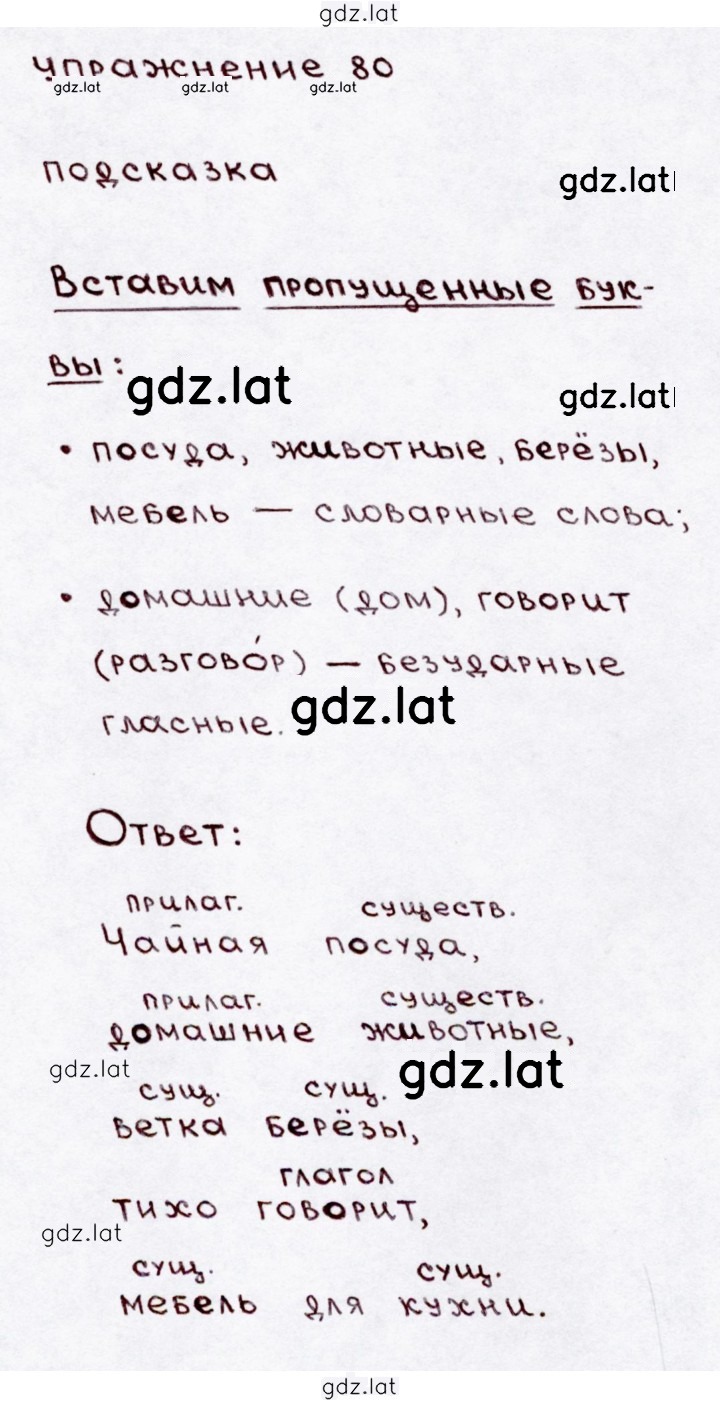 gdz.lat
упражнение 80
gdz.lat gdz.lat gdz.lat
подсказка
gdz.lat
Вставим пропущенные бук-
вы:
gdz.lat
gdz.lat
• посуда, животные, берёзы,
мебель — словарные слова;
• домашние (дом), говорит
(разгово́р) — безударные
гласные.
gdz.lat
Ответ:
прилаг. существ.
Чайная посуда,
прилаг. существ.
домашние животные,
gdz.lat
gdz.lat
сущ. сущ.
ветка берёзы,
глагол
тихо говорит,
gdz.lat
сущ. сущ.
мебель для кухни.
gdz.lat